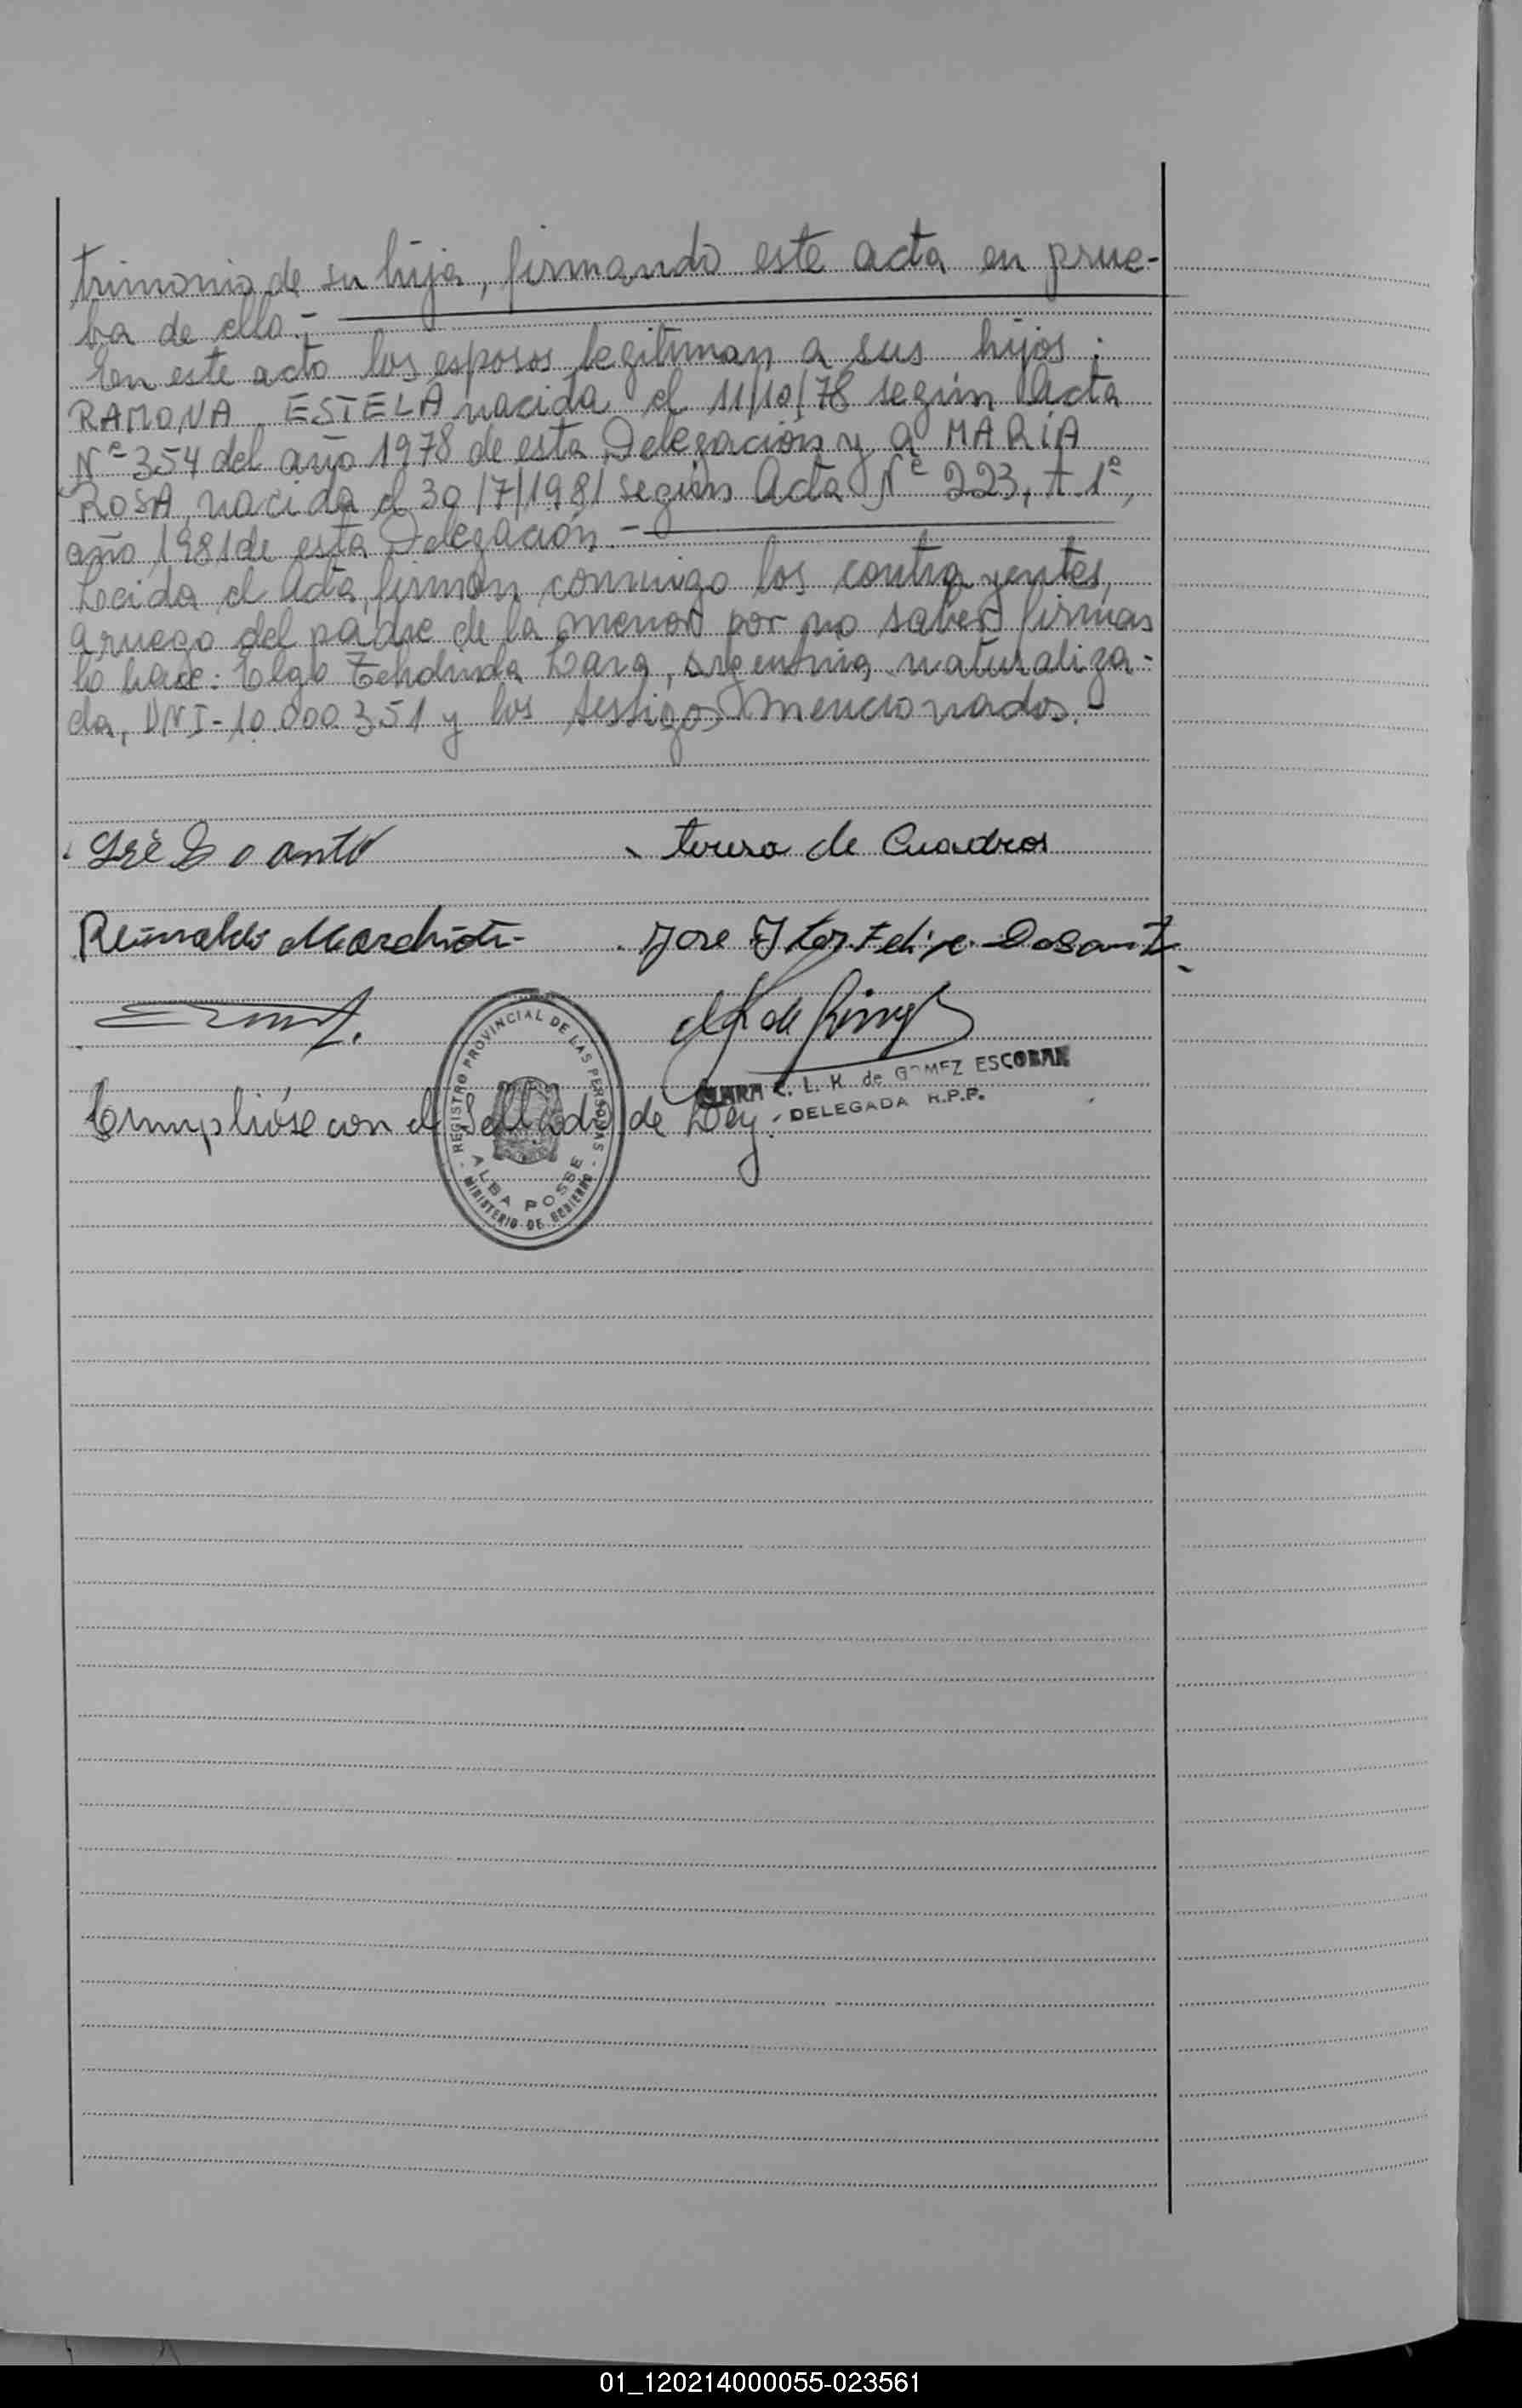 trimonio de su hija, firmando este acta en prue-
ba de ello.-
En este acto los esposos legitiman a sus hijos:
RAMONA ESTELA nacida el 11/10/78 según Acta
Nº 354 del año 1978 de esta Delegación y a MARÍA
ROSA nacida el 30/7/1981 según Acta Nº 223, t 1º,
año 1981 de esta Delegación.-
Leida el Acta, firman conmigo los contrayentes,
a ruego del padre de la menor por no saber firmar
lo hace: Lara, argentina naturaliza-
da, DNI-10.000.351 y los testigos mencionados.-
teresa de Cuadros
Reinaldo
Jose Felix Dosant
REGISTRO PROVINCIAL DE LAS PERSONAS
ALBA POSSE
MINISTERIO DE GOBIERNO
CLARA C. L. K. de GOMEZ ESCOBAR
DELEGADA R.P.P.
Cumplióse con el Sellado de Ley.
01_120214000055-023561